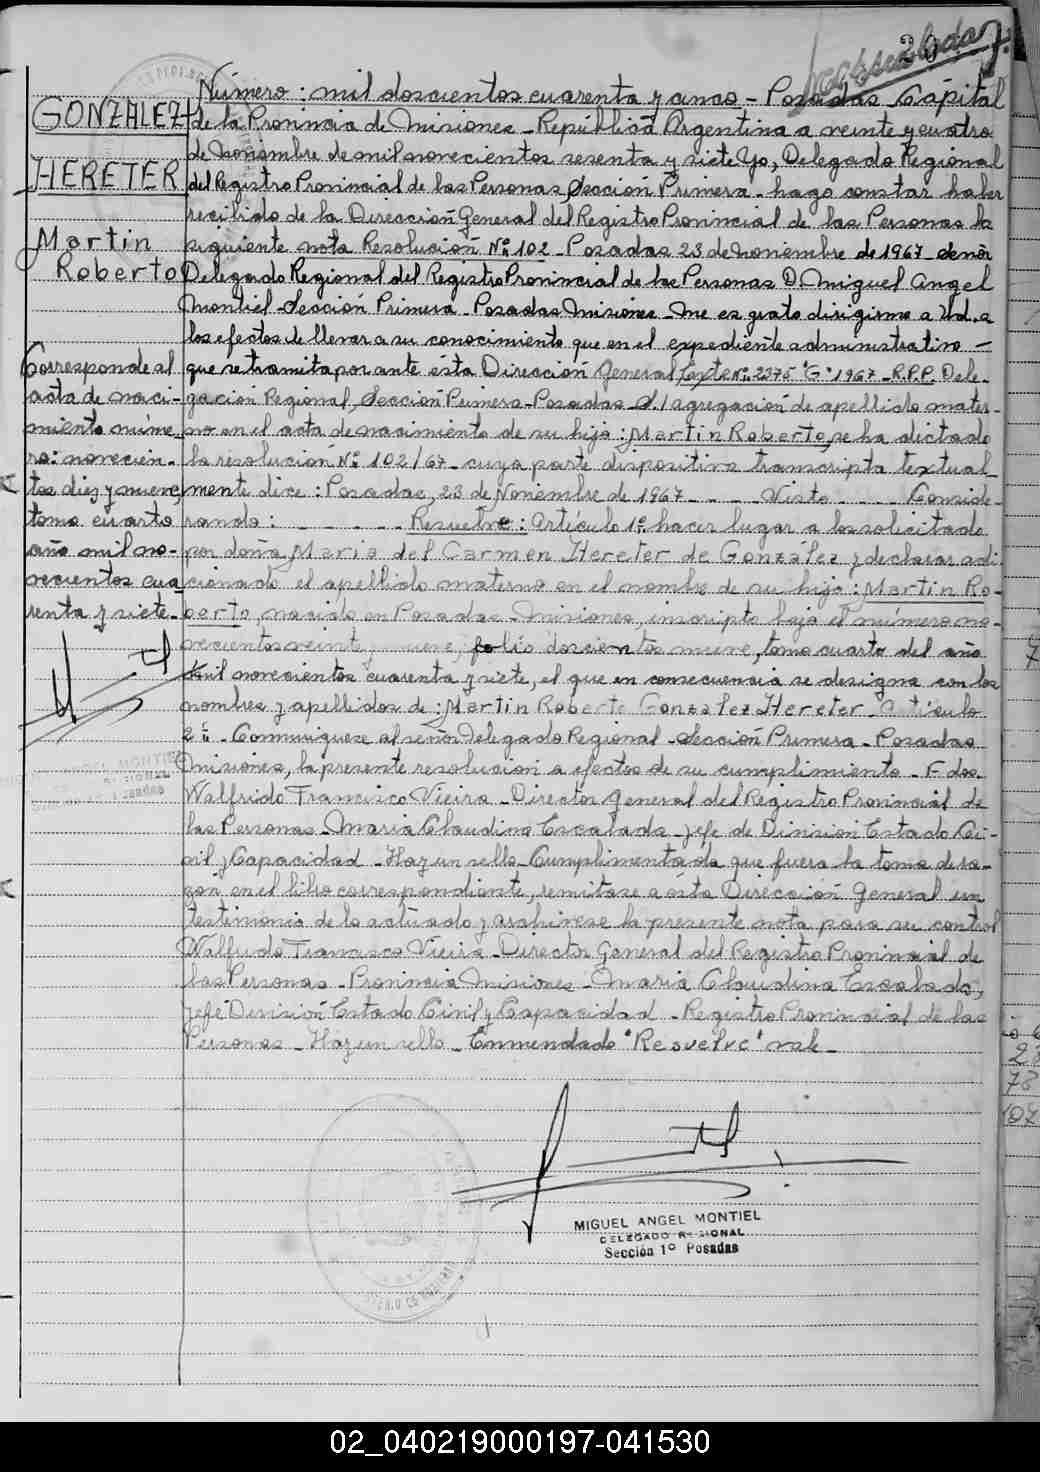 20
GONZALEZ
HERETER
Martin
Roberto
Corresponde al
acta de naci-
miento núme-
ro: novecien-
tos diez y nueve,
tomo cuarto
año mil no-
vecientos cua
renta y siete-
Número: mil doscientos cuarenta y cinco - Posadas Capital
de la Provincia de Misiones - República Argentina a veinte y cuatro
de noviembre de mil novecientos sesenta y siete Yo, Delegado Regional
del Registro Provincial de las Personas, Sección Primera - hago constar haber
recibido de la Dirección General del Registro Provincial de las Personas la
siguiente nota Resolución Nº 102 - Posadas 23 de noviembre de 1967 - señor
Delegado Regional del Registro Provincial de las Personas D. Miguel Angel
Montiel - Sección Primera - Posadas Misiones - Me es grato dirigirme a Ud. a
los efectos de llevar a su conocimiento que en el expediente administrativo -
que se tramita por ante ésta Dirección General, Expte Nº 2375 "G" 1967 - R.P.P. Dele-
gación Regional, Sección Primera - Posadas S/agregación de apellido mater-
no en el acta de nacimiento de su hijo: Martin Roberto, se ha dictado
la resolución Nº 102/67 - cuya parte dispositiva transcripta textual-
mente dice: Posadas, 23 de Noviembre de 1967 - - - - Visto - - - - Conside-
rando: - - - - - Resuelve: Artículo 1º: hacer lugar a lo solicitado
por doña Maria del Carmen Hereter de González y declarar adi
cionado el apellido materno en el nombre de su hijo: Martin Ro-
berto, nacido en Posadas - Misiones, inscripto bajo el número no-
vecientos veinte y nueve, folio doscientos nueve, tomo cuarto del año
mil novecientos cuarenta y siete, el que en consecuencia se designa con los
nombres y apellidos de: Martin Roberto Gonzalez Hereter - Artículo
2º - Comuníquese al señor Delegado Regional - Sección Primera - Posadas
Misiones, la presente resolución a efectos de su cumplimiento - Fdos.
Walfrido Francisco Vieira - Director General del Registro Provincial de
las Personas - Maria Claudina Escalada - Jefe de División Estado Ci-
vil y Capacidad - Hay un sello - Cumplimentada que fuera la toma de ra-
zon en el libro correspondiente, remítase a ésta Dirección General un
testimonio de lo actuado y archívese la presente nota para su control
Walfrido Francisco Vieira - Director General del Registro Provincial de
las Personas - Provincia Misiones - Maria Claudina Escalada,
Jefe División Estado Civil y Capacidad - Registro Provincial de las
Personas - Hay un sello - Enmendado "Resuelve" vale -
MIGUEL ANGEL MONTIEL
DELEGADO REGIONAL
Sección 1º Posadas
78
102
02_040219000197-041530